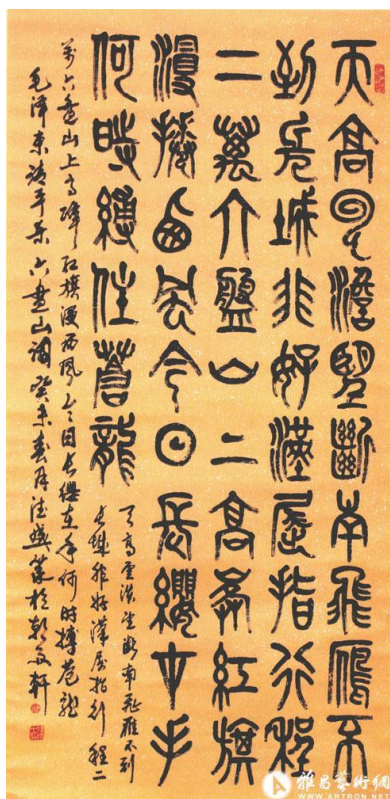 天高雲澹望斷南飛鴈不
到長城非好漢屈指行程
二萬六盤山上高峯紅旗
漫捲西風今日長纓在手
何時縛住蒼龍
天高雲淡望斷南飛雁不到
長城非好漢屈指行程二
萬六盤山上高峰紅旗漫西風今日長纓在手何時縛蒼龍
毛澤東清平樂六盤山詞癸未春月篆於軒
雅昌藝術網
WWW.ARTRON.NET